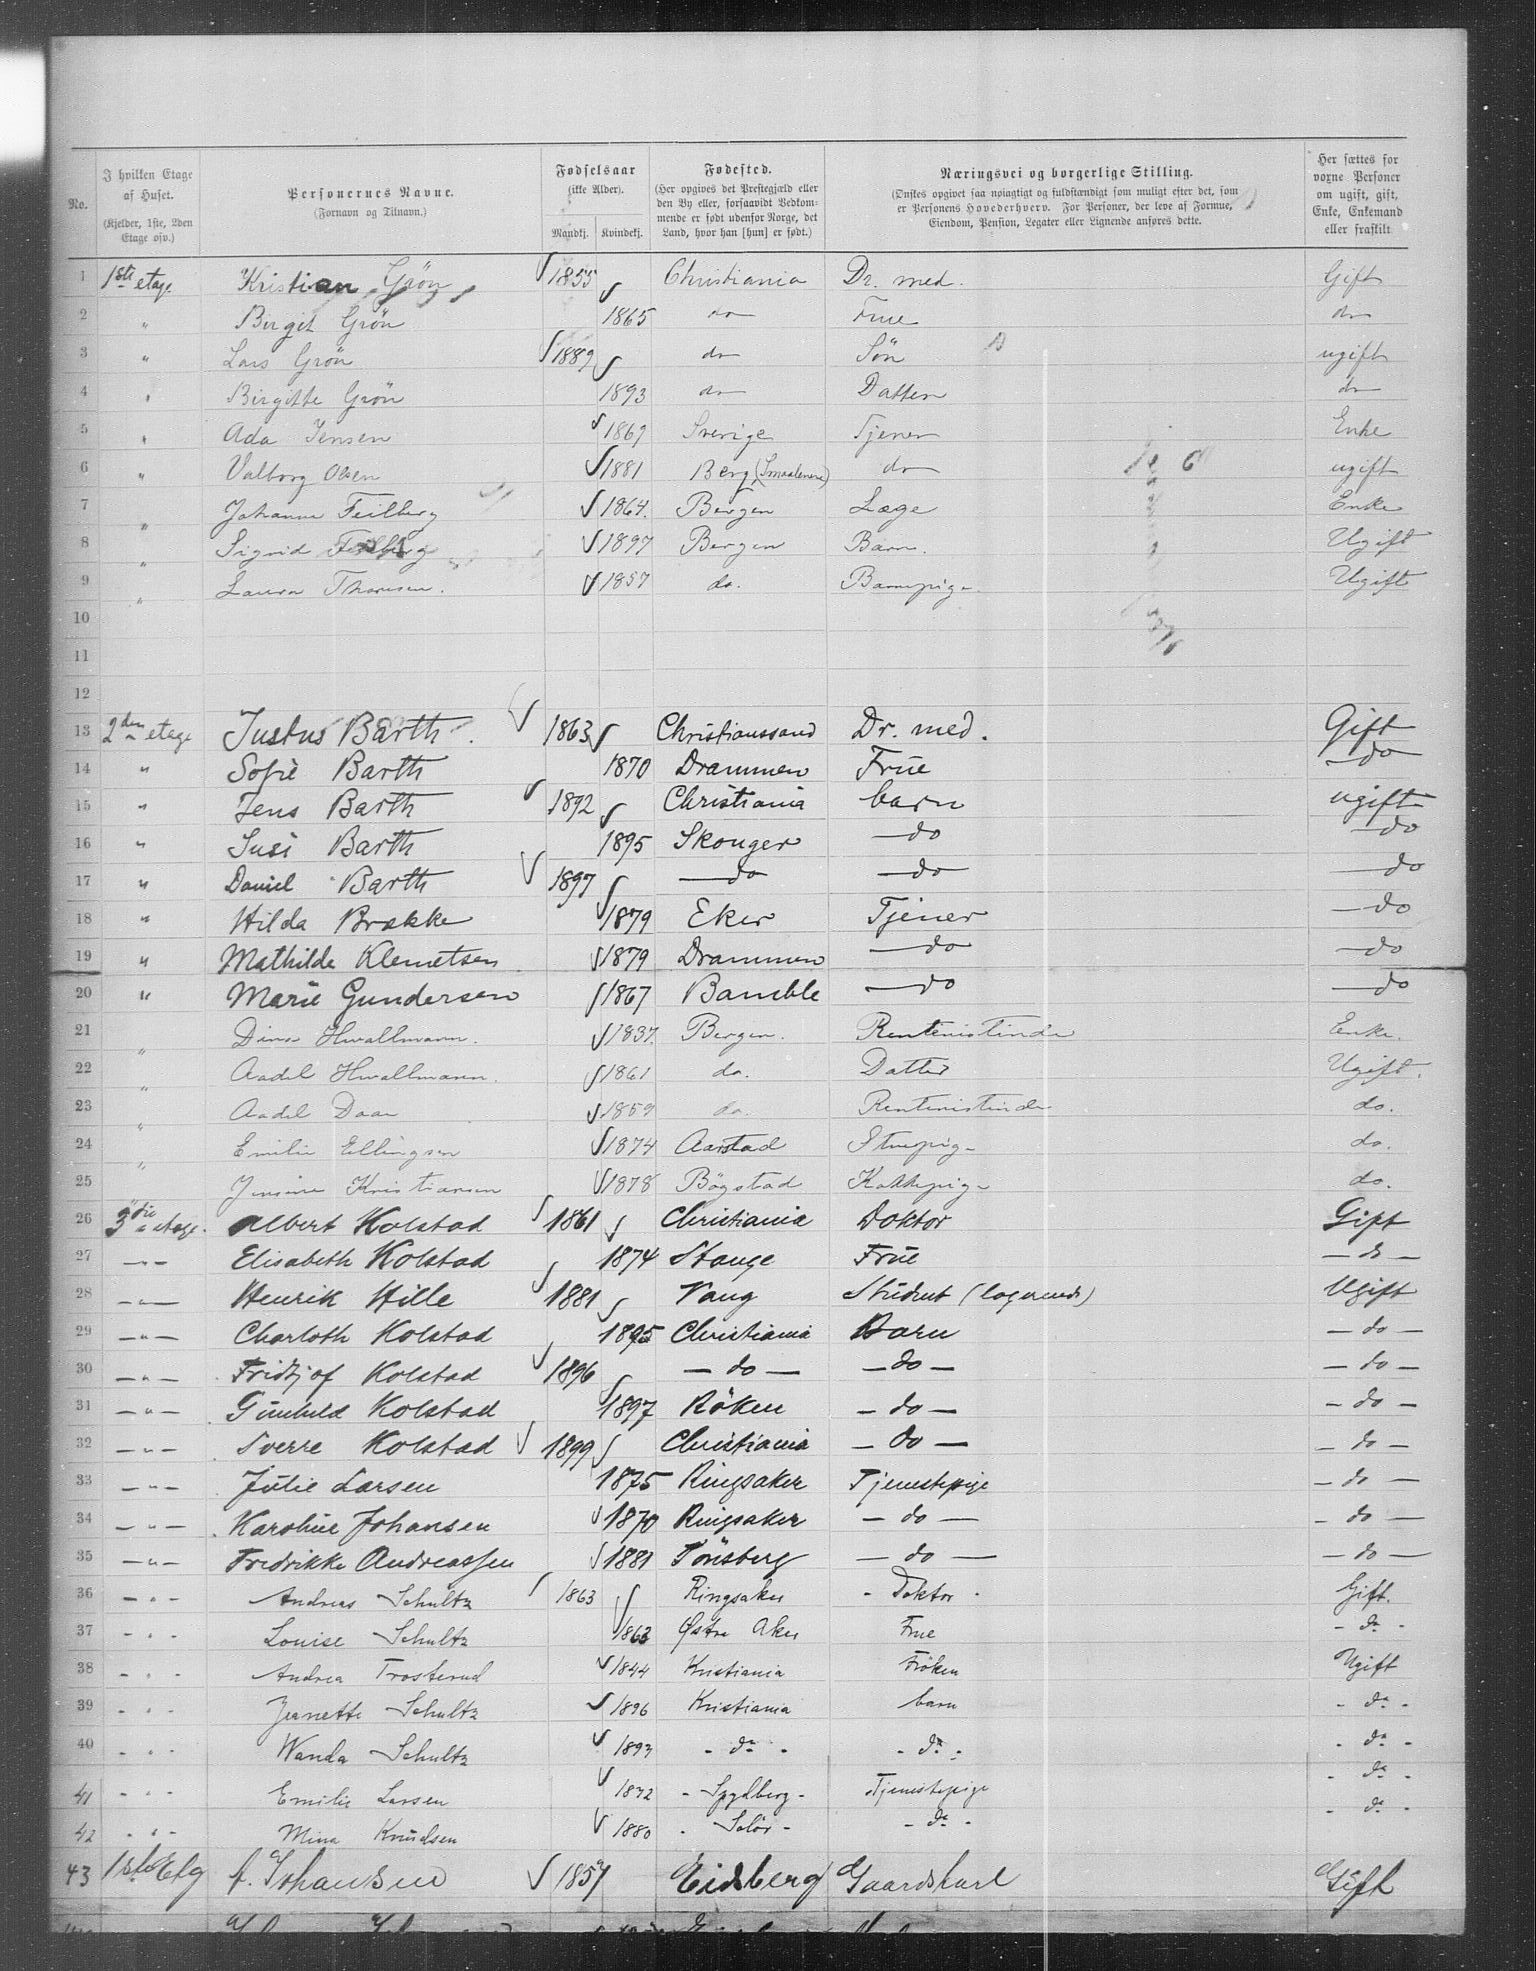 No. | I hvilken Etage af Huset. (Kjelder, 1ste, 2den Etage osv.) | Personernes Navne. (Fornavn og Tilnavn.) | Fødselsaar (ikke Alder). Mandkj. Kvindekj. | Fødested. (Her opgives det Prestegjæld eller den By eller, forsaavidt Vedkommende er født udenfor Norge, det Land, hvor han [hun] er født.) | Næringsvei og borgerlige Stilling. (Ønskes opgivet saa nøiagtigt og fuldstændigt som muligt efter det, som er Personens Hovederhverv. For Personer, der leve af Formue, Eiendom, Pension, Legater eller Lignende anføres dette. | Her sættes for voxne Personer om ugift, gift, Enke, Enkemand eller fraskilt
1 1ste etage Kristian Grön 1855 Christiania Dr. med. Gift
2 " Birgit Grön 1865 do Frue do
3 " Lars Grön 1889 do Sön ugift
4 " Birgitte Grön 1893 do Datter do
5 " Ada Jensen 1869 Sverige Tjener Enke
6 " Valborg Olsen 1881 Berg (Smaalenene) do ugift
7 " Johanne Feilberg 1864. Bergen Læge Enke
8 " Sigrid Feilberg 1897 Bergen Barn. Ugift
9 " Laura Thoresen. 1857 do. Barnepige Ugift
10
11
12
13 2den etage Justus Barth. 1863 Christianssand Dr. med. Gift
14 " Sofie Barth 1870 Drammen Frue do
15 " Jens Barth 1892 Christiania barn ugift
16 " Susi Barth 1895 Skouger do do
17 " Daniel Barth 1897 do do do
18 " Hilda Brække 1879 Eker Tjener do
19 " Mathilde Klemetsen 1879 Drammen do do
20 " Marie Gundersen 1867 Bamble do do
21 " Dina Hwallmann. 1837. Bergen. Rentenistinde Enke.
22 " Aadel Hwallmann. 1861 do. Datter Ugift.
23 " Aadel Daae 1859 do. Rentenistinde do.
24 " Emilie Ellingsen 1874 Aarstad Stuepige do.
25 " Jensine Kristiansen 1878 Bögstad Kokkepige do.
26 3die etage. Albert Kolstad 1861 Christiania Doktor Gift
27 -"- Elisabeth Kolstad 1874 Stange Frue - do -
28 -"- Henrik Hille 1881 Vang Student (logerende) Ugift
29 -"- Charloth Kolstad 1895 Christiania Barn - do -
30 -"- Fridtjof Kolstad 1896 - do - - do - - do -
31 -"- Gunhild Kolstad 1897 Röken - do - - do -
32 -"- Sverre Kolstad 1899 Christiania - do - - do -
33 -"- Julie Larsen 1875 Ringsaker Tjenestepige - do -
34 -"- Karoline Johansen 1870 Ringsaker - do - - do -
35 -"- Fredrikke Andreassen 1881 Tönsberg - do - - do -
36 -"- Andreas Schultz 1863 Ringsaker - Doktor - Gift.
37 -"- Louise Schultz 1863 Østre Aker Frue - do -
38 -"- Andrea Trosterud 1844 Kristiania Fröken Ugift
39 -"- Jeanette Schultz 1896 Kristiania barn - do -
40 -"- Wanda Schultz 1893 - do - - do - - do -
41 -"- Emilie Larsen 1872 - Spydberg - Tjenestepige - do -
42 -"- Mina Knudsen 1880 - Solör - - do - - do -
43 1ste Etg A. Johansen 1857 Eidsberg Gaardskarl Gift